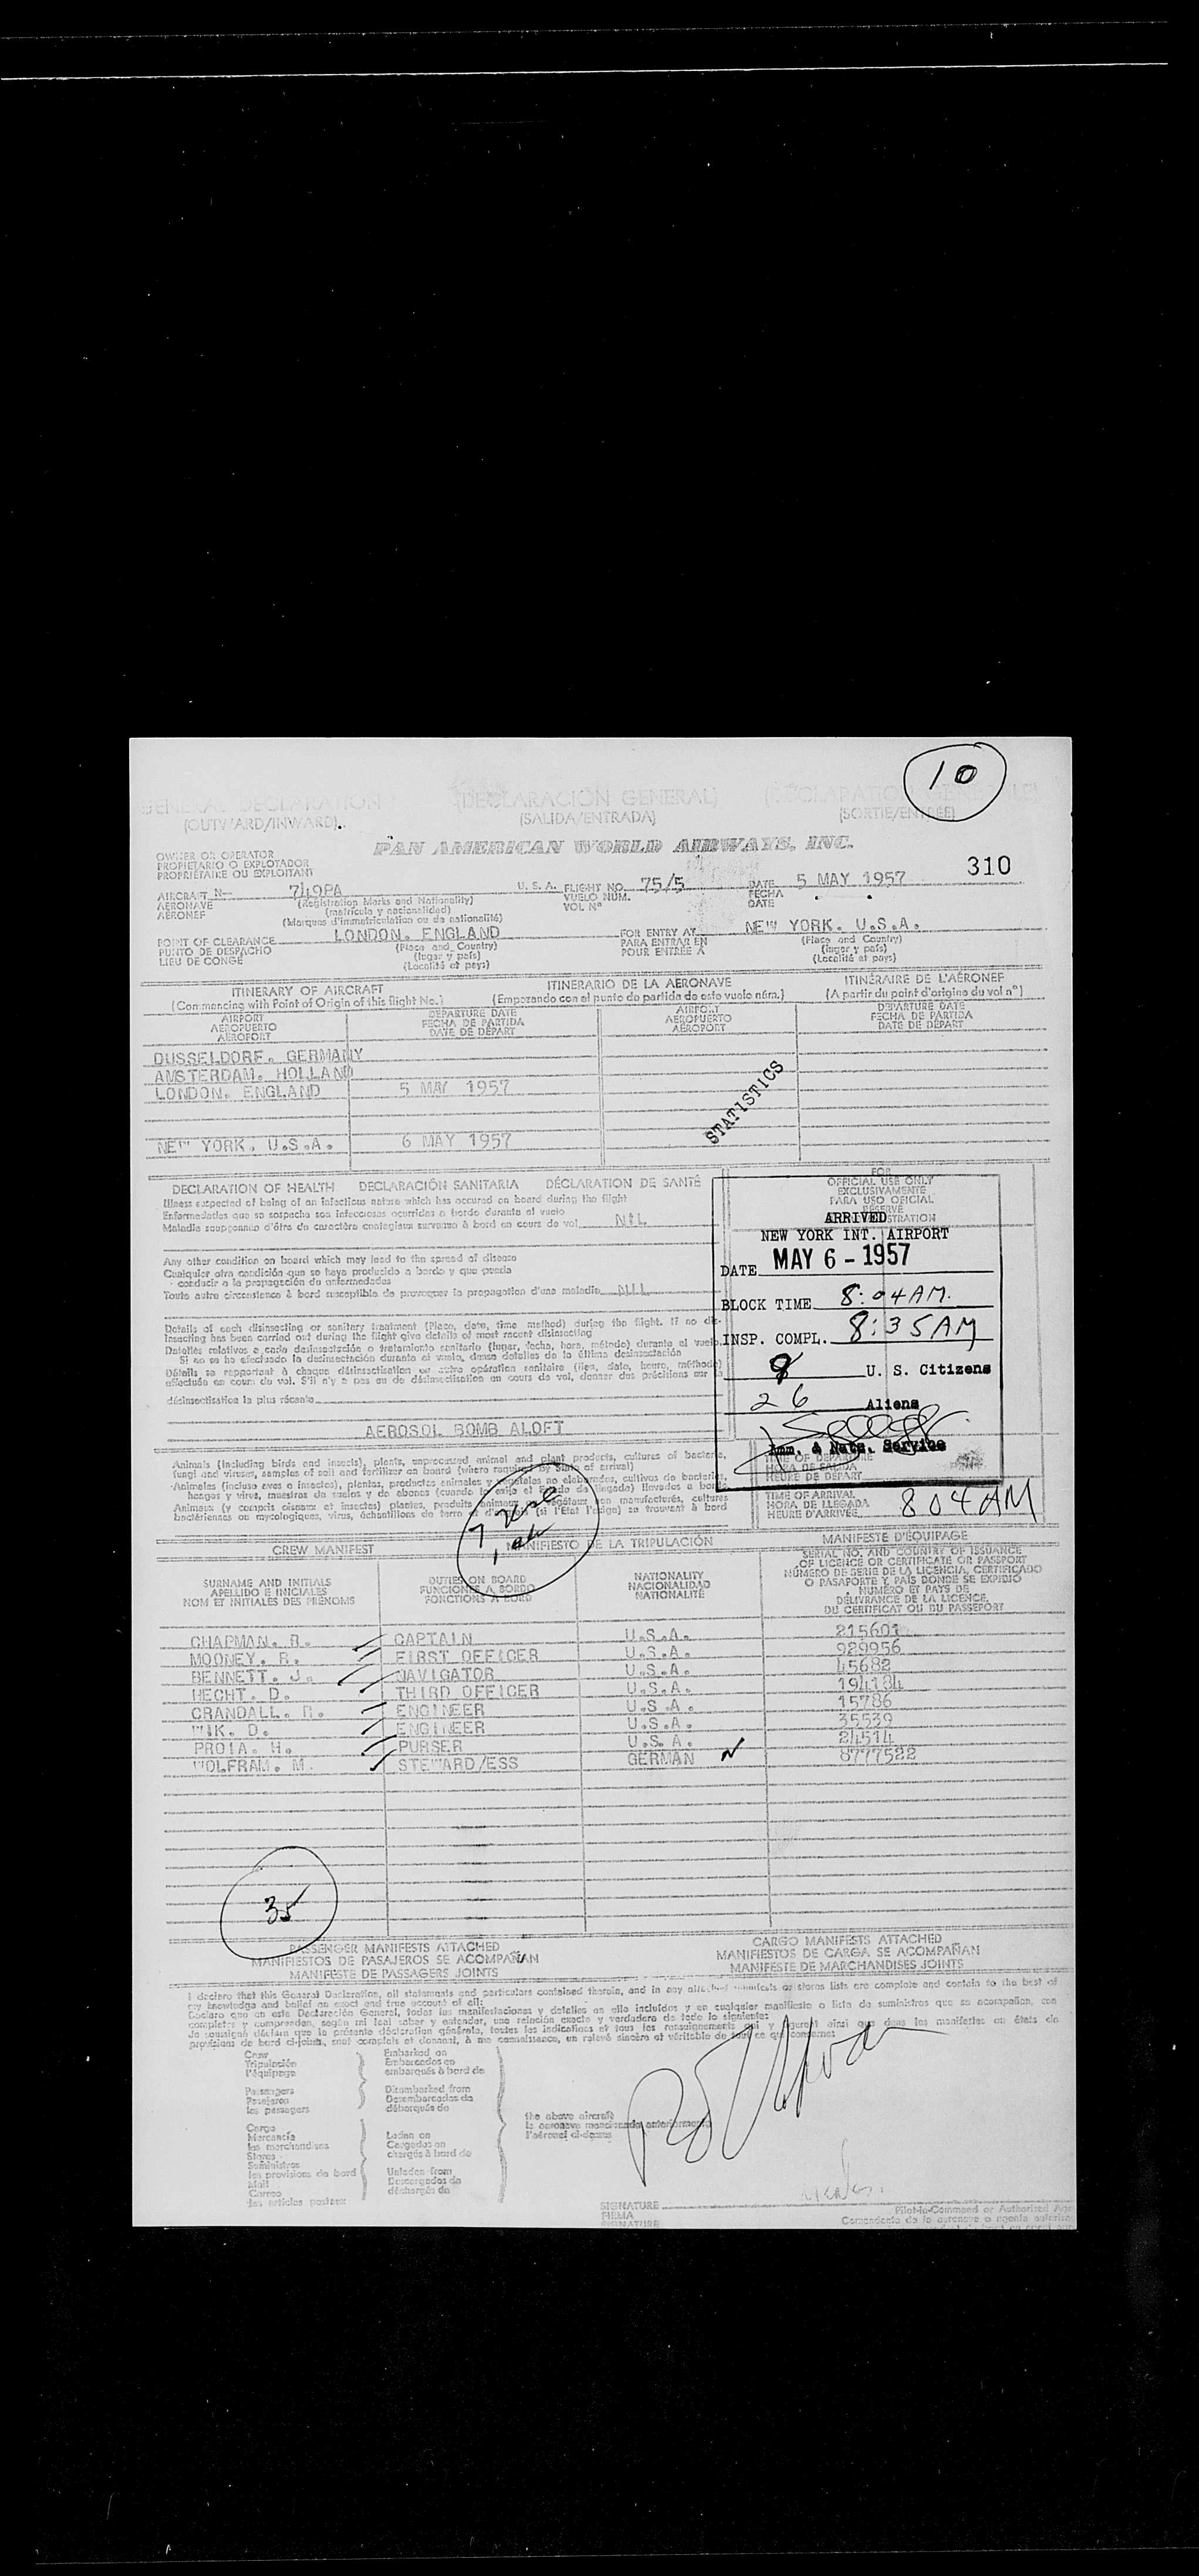 10
GENERAL DECLARATION (DECLARACIÓN GENERAL)
(OUTWARD/INWARD) (SALIDA/ENTRADA) (SORTIE/ENTRÉE)
PAN AMERICAN WORLD AIRWAYS, INC.
OWNER OR OPERATOR
PROPIETARIO O EXPLOTADOR
PROPRIÉTAIRE OU EXPLOITANT
310
AIRCRAFT N- 749PA U.S.A. FLIGHT NO. 75/5 DATE 5 MAY 1957
AERONAVE (Registration Marks and Nationality) VUELO NUM. FECHA
AÉRONEF (matrícula y nacionalidad) VOL Nº DATE
(Marques d'immatriculation ou de nationalité)
POINT OF CLEARANCE LONDON. ENGLAND FOR ENTRY AT NEW YORK. U.S.A.
PUNTO DE DESPACHO (Place and Country) PARA ENTRAR EN (Place and Country)
LIEU DE CONGÉ (lugar y país) POUR ENTRÉE A (lugar y país)
(Localité et pays) (Localité et pays)
ITINERARY OF AIRCRAFT ITINERARIO DE LA AERONAVE ITINÉRAIRE DE L'AÉRONEF
(Commencing with Point of Origin of this flight No.) (Empezando con el punto de partida de este vuelo núm.) (A partir du point d'origine du vol nº)
AIRPORT DEPARTURE DATE AIRPORT DEPARTURE DATE
AEROPUERTO FECHA DE PARTIDA AEROPUERTO FECHA DE PARTIDA
AÉROPORT DATE DE DÉPART AÉROPORT DATE DE DÉPART
DUSSELDORF. GERMANY
AMSTERDAM. HOLLAND
LONDON. ENGLAND 5 MAY 1957
STATISTICS
NEW YORK. U.S.A. 6 MAY 1957
DECLARATION OF HEALTH DECLARACIÓN SANITARIA DÉCLARATION DE SANTÉ
Illness suspected of being of an infectious nature which has occured on board during the flight
Enfermedades que se sospecha son infecciosas ocurridas a bordo durante el vuelo
Maladie soupçonnée d'être de caractère contagieux survenue à bord en cours de vol NIL
Any other condition on board which may lead to the spread of disease
Cualquier otra condición que se haya producido a bordo y que pueda
conducir a la propagación de enfermedades
Toute autre circonstance à bord susceptible de provoquer la propagation d'une maladie NIL
Details of each disinsecting or sanitary treatment (Place, date, time method) during the flight. If no dis-
insecting has been carried out during the flight give details of most recent disinsecting
Detalles relativos a cada desinsectación o tratamiento sanitario (lugar, fecha, hora, método) durante el vuelo.
Si no se ha efectuado la desinsectación durante el vuelo, dense detalles de la última desinsectación
Détails se rapportant à chaque désinsectisation ou autre opération sanitaire (lieu, date, heure, méthode)
effectuée en cours de vol. S'il n'y a pas eu de désinsectisation en cours de vol, donner des précisions sur la
désinsectisation la plus récente
AEROSOL BOMB ALOFT
FOR
OFFICIAL USE ONLY
EXCLUSIVAMENTE
PARA USO OFICIAL
RÉSERVÉ
ARRIVED
NEW YORK INT. AIRPORT
DATE MAY 6 - 1957
BLOCK TIME 8:04 AM.
INSP. COMPL. 8:35 AM
9 U. S. Citizens
26 Aliens
Imm. & Natz. Service
TIME OF DEPARTURE
HORA DE SALIDA
HEURE DE DÉPART
TIME OF ARRIVAL
HORA DE LLEGADA
HEURE D'ARRIVÉE 804 AM
Animals (including birds and insects), plants, unprocessed animal and plant products, cultures of bacteria,
fungi and viruses, samples of soil and fertilizer on board (where required by State of arrival)
Animales (incluso aves e insectos), plantas, productos animales y vegetales no elaborados, cultivos de bacterias,
hongos y virus, muestras de suelos y de abonos (cuando lo exija el Estado de llegada) llevados a bordo
Animaux (y compris oiseaux et insectes) plantes, produits animaux et végétaux non manufacturés, cultures
bactériennes ou mycologiques, virus, échantillons de terre et d'engrais (si l'Etat l'exige) se trouvant à bord
CREW MANIFEST MANIFIESTO DE LA TRIPULACIÓN MANIFESTE D'ÉQUIPAGE
SURNAME AND INITIALS
APELLIDO E INICIALES
NOM ET INITIALES DES PRÉNOMS
DUTIES ON BOARD
FUNCIONES A BORDO
FONCTIONS A BORD
NATIONALITY
NACIONALIDAD
NATIONALITÉ
SERIAL NO. AND COUNTRY OF ISSUANCE
OF LICENCE OR CERTIFICATE OR PASSPORT
NÚMERO DE SERIE DE LA LICENCIA, CERTIFICADO
O PASAPORTE Y PAÍS DONDE SE EXPIDIÓ
NUMÉRO ET PAYS DE
DÉLIVRANCE DE LA LICENCE,
DU CERTIFICAT OU DU PASSEPORT
CHAPMAN. R. CAPTAIN U.S.A. 215601
MOONEY. R. FIRST OFFICER U.S.A. 929956
BENNETT. J. NAVIGATOR U.S.A. 45682
HECHT. D. THIRD OFFICER U.S.A. 194184
CRANDALL. R. ENGINEER U.S.A. 15786
WIK. D. ENGINEER U.S.A. 35539
PROIA. H. PURSER U.S.A. 24514
WOLFRAM. M. STEWARD/ESS GERMAN 8777522
35
PASSENGER MANIFESTS ATTACHED CARGO MANIFESTS ATTACHED
MANIFIESTOS DE PASAJEROS SE ACOMPAÑAN MANIFIESTOS DE CARGA SE ACOMPAÑAN
MANIFESTE DE PASSAGERS JOINTS MANIFESTE DE MARCHANDISES JOINTS
I declare that this General Declaration, all statements and particulars contained therein, and in any attached manifests or stores lists are complete and contain to the best of
my knowledge and belief an exact and true account of all:
Declaro que en esta Declaración General, todas las manifestaciones y detalles en ella incluidos y en cualquier manifiesto o lista de suministros que se acompañan, son
completos y comprenden, según mi leal saber y entender, una relación exacta y verdadera de todo lo siguiente:
Je soussigné déclare que la présente déclaration générale, toutes les indications et tous les renseignements qui y figurent ainsi que dans les manifestes ou états de
provisions de bord ci-joints, sont complets et donnent, à ma connaissance, un relevé sincère et véritable de tout ce qui concerne:
Crew Embarked on
Tripulación Embarcados en
l'équipage embarqués à bord de
Passengers Disembarked from
Pasajeros Desembarcados de
les passagers débarqués de
the above aircraft
la aeronave mencionada anteriormente
l'aéronef ci-dessus
Cargo
Mercancía Laden on
les marchandises Cargados en
Stores chargés à bord de
Suministros
les provisions de bord Unladen from
Mail Descargados de
Correo déchargés de
les articles postaux
SIGNATURE
FIRMA
SIGNATURE
Pilot-in-Command or Authorized Age
Comandante de la aeronave o agente autoriza